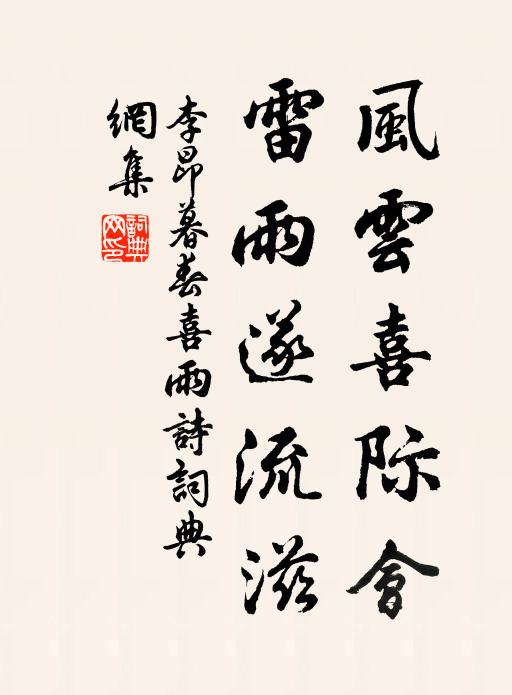 風雲喜际會
雷雨遂流滋
李昂暮春喜雨詩詞典
網集
詞典网印